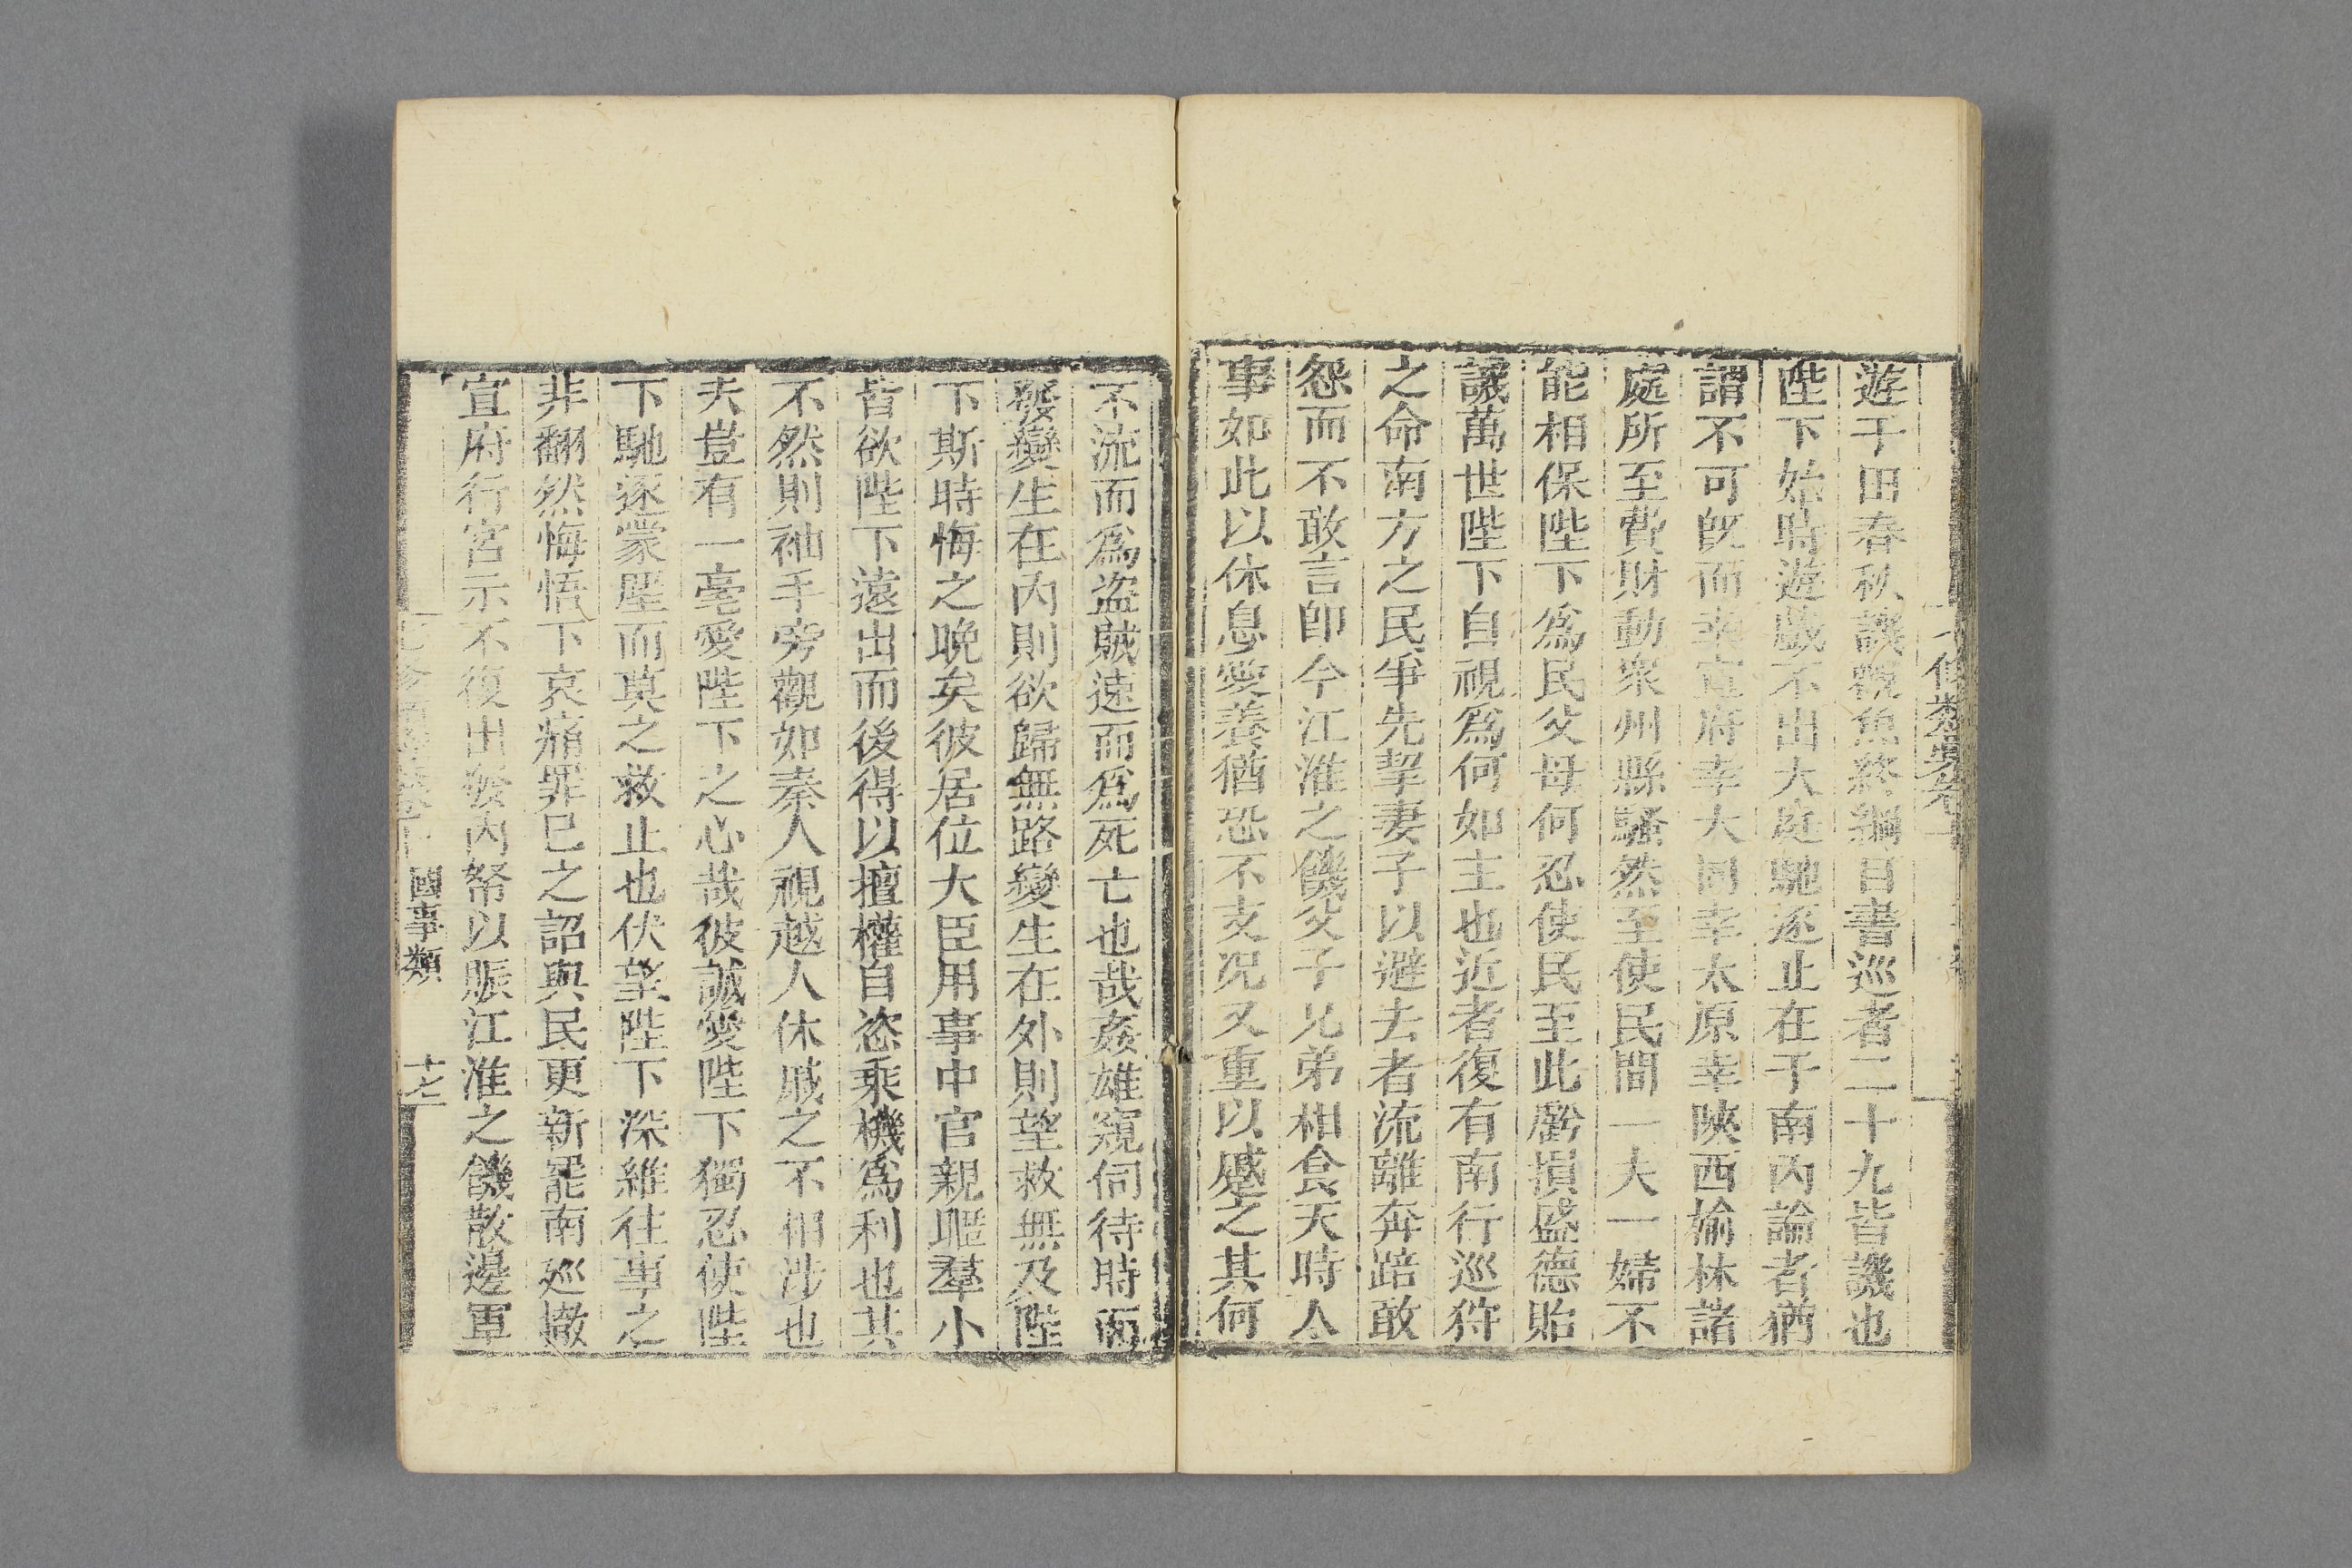 遊于田春秋譏觀魚終綱目書巡者二十九皆譏也
陛下始時遊戲不出大庭馳逐止在于南内論者猶
謂不可旣而幸宣府幸大同幸太原幸陝西榆林諸
處所至費財動衆州縣騷然至使民間一夫一婦不
能相保陛下爲民父母何忍使民至此虧損盛德貽
譏萬世陛下自視爲何如主也近者復有南行巡狩
之命南方之民爭先挈妻子以避去者流離奔踣敢
怨而不敢言卽今江淮之饑父子兄弟相食天時人
事如此以休息愛養猶恐不支况又重以蹙之其何
不流而爲盜賊速而爲死亡也哉姦雄窺伺待時而
發變生在内則欲歸無路變生在外則望救無及陛
下斯時悔之晚矣彼居位大臣用事中官親昵羣小
皆欲陛下遠出而後得以擅權自恣乘機爲利也其
不然則袖手旁觀如秦人視越人休戚之不相涉也
夫豈有一毫愛陛下之心哉彼誠愛陛下獨忍使陛
下馳逐蒙塵而莫之救止也伏望陛下深維往事之
非翻然悔悟下哀痛罪已之詔與民更新罷南廵撤
宣府行宮示不復出發内帑以賑江淮之饑散邊軍
國事類 十七